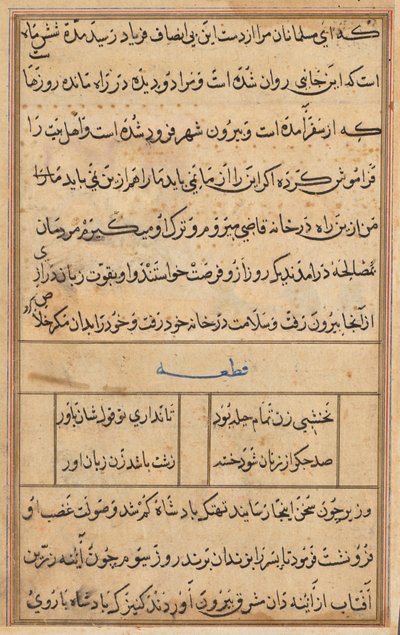 که ای مسلمانان مرا از دست این بی انصاف فریاد رسید مدة شش ماه
است که این جایی روان شده است و مرا دو دیده در راه مانده روزها
که از سفر آمده است و بیرون شهر فرود شده است و اهل بیت را
فراموش کرده اکر این را از ما نمی باید ما را هم ازین نمی باید ما را
من ازین راه در خانه قاضی میروم و ترک او میکیرم مردمان
بمصالحه درامدند یک روز ازو فرصت خواستند و او بقوت زبان درازی
از آنجا بیرون رفت و سلامت در خانه خود رفت و خود را بدان مکر خلاص کرد
قطعه
نخشبی زن تمام حیله بود تا نداری تو قول شان باور
صد جکر از زنان شود خسته زشت باشد زن زبان اور
وزیر چون سخن اینجا رسانید تهتک بادشاه کم شد و صولت غضب او
فرو نشست فرمود تا پسر را بزندان برند روز سیوم چون آئنه زرین
آفتاب از آئنه دان مشرق بیرون آوردند کنیزک بادشاه با روی